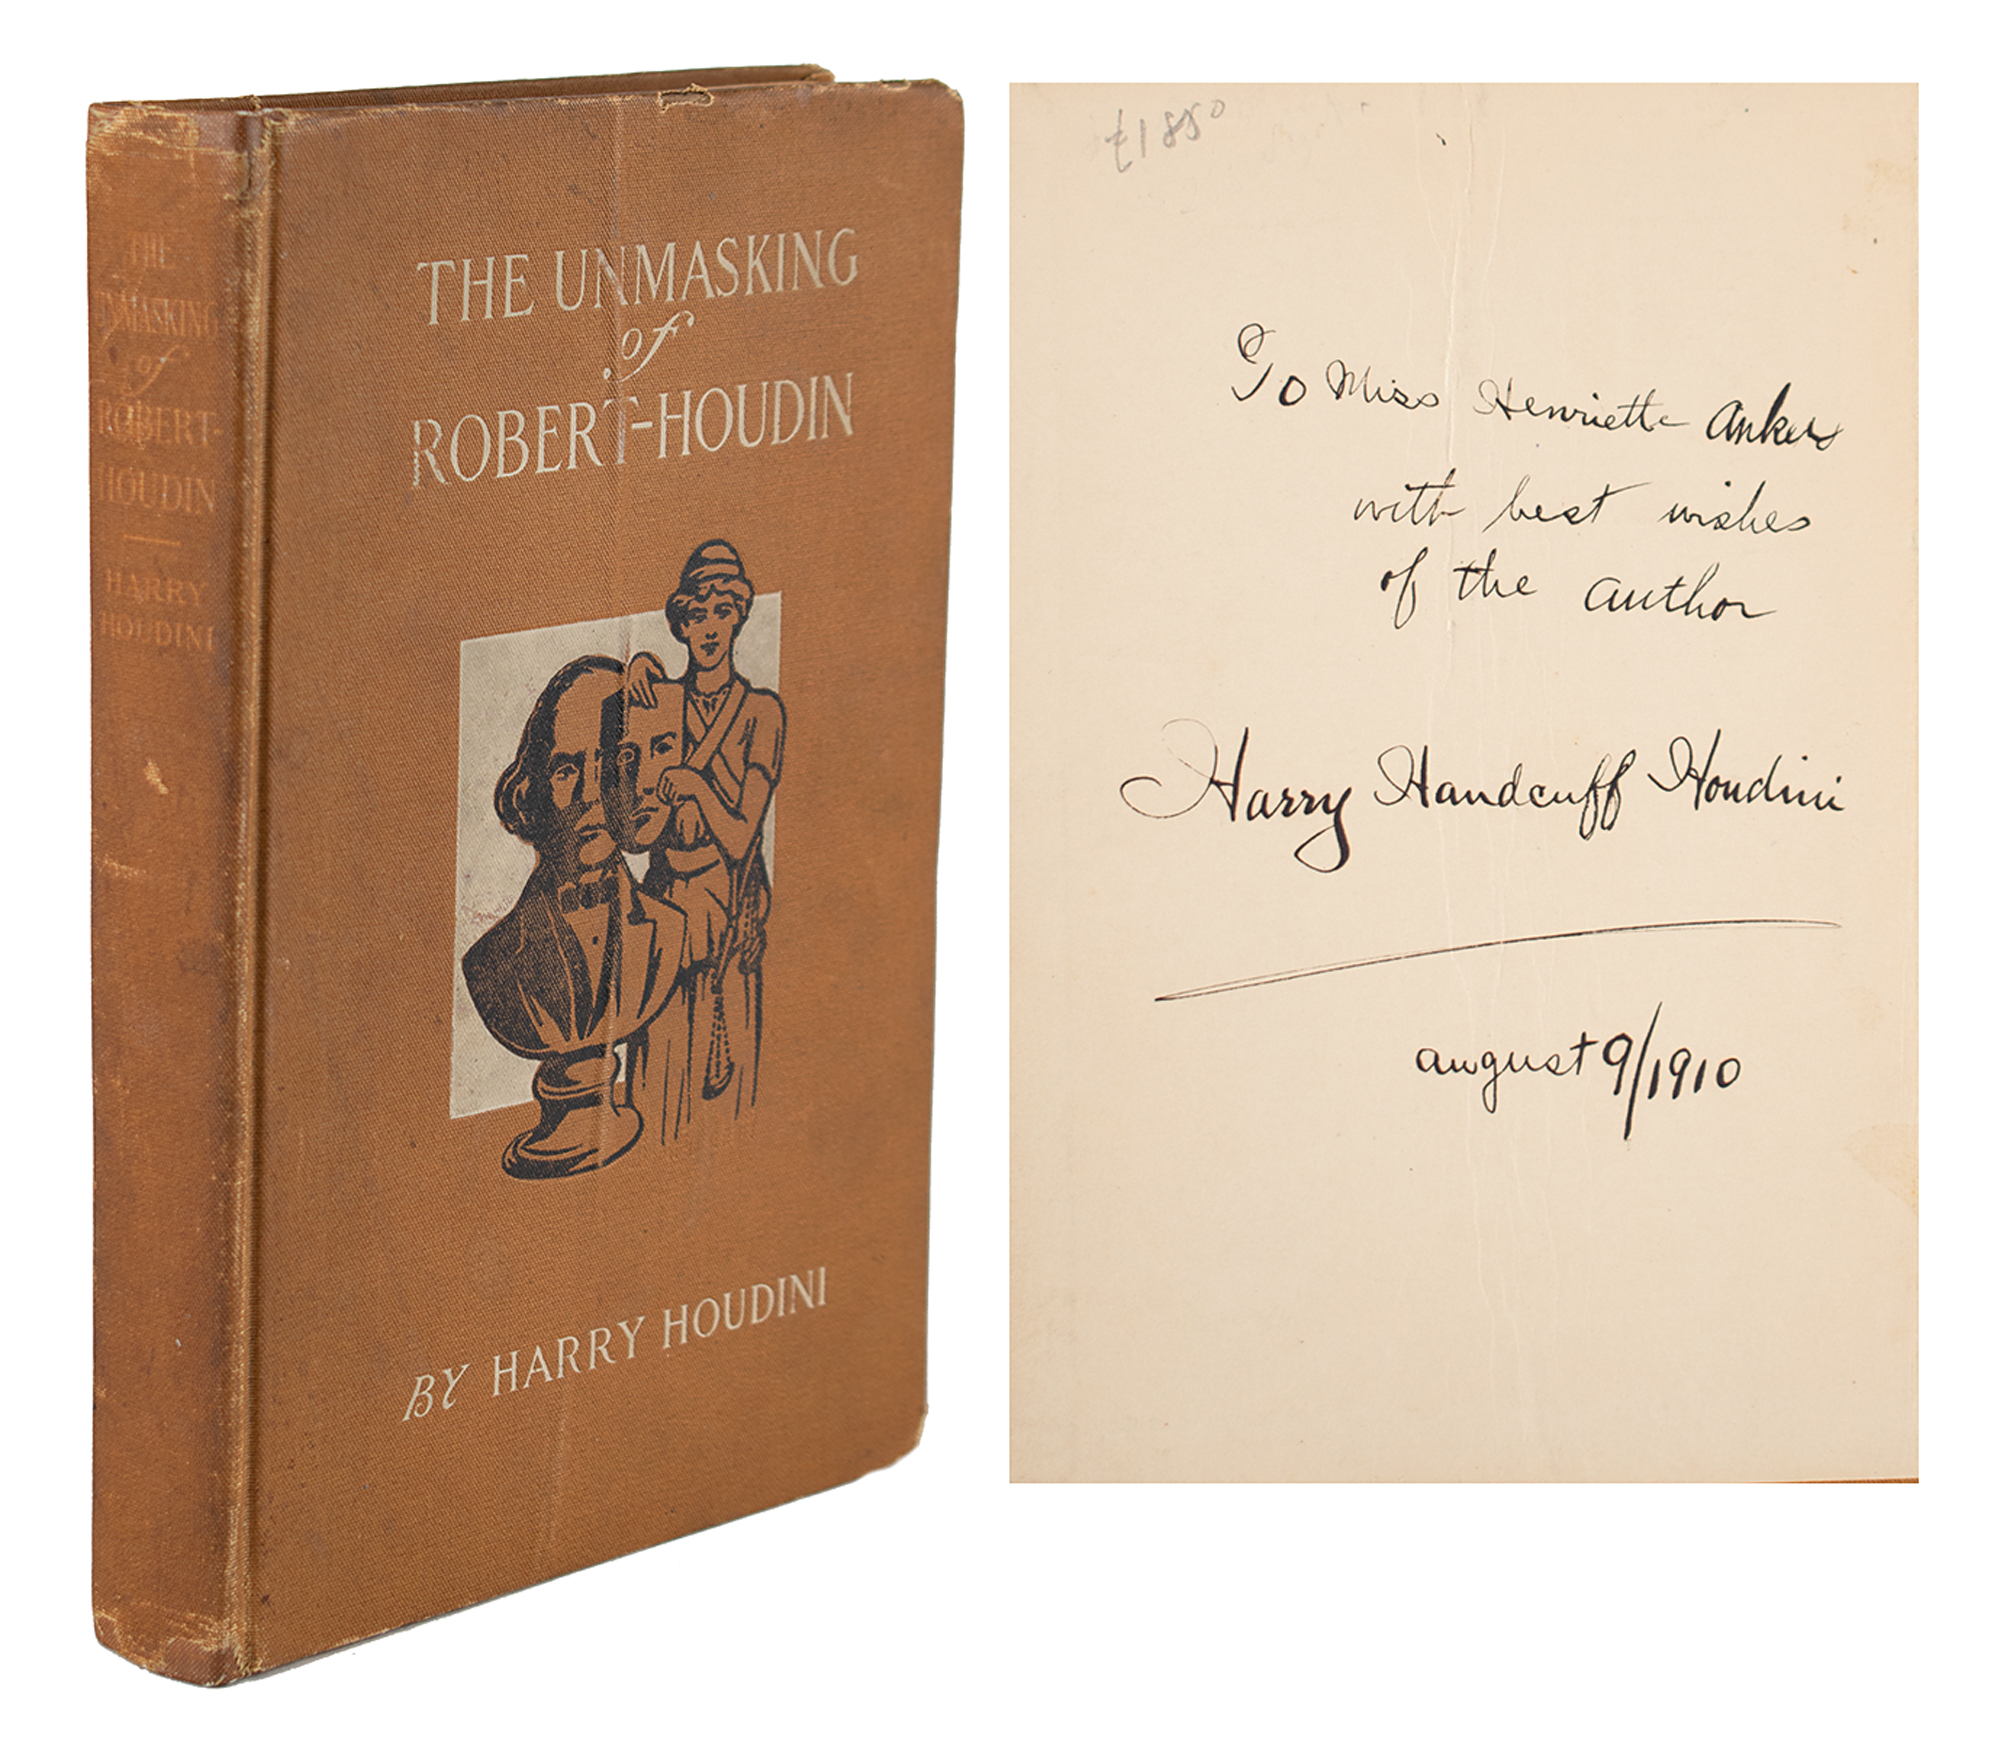 THE
UNMASKING
of
ROBERT-
HOUDIN
HARRY
HOUDINI
THE UNMASKING
of
ROBERT-HOUDIN
BY HARRY HOUDINI
£1850
To Miss Henriette Ankers
with best wishes
of the author
Harry Handcuff Houdini
august 9/1910